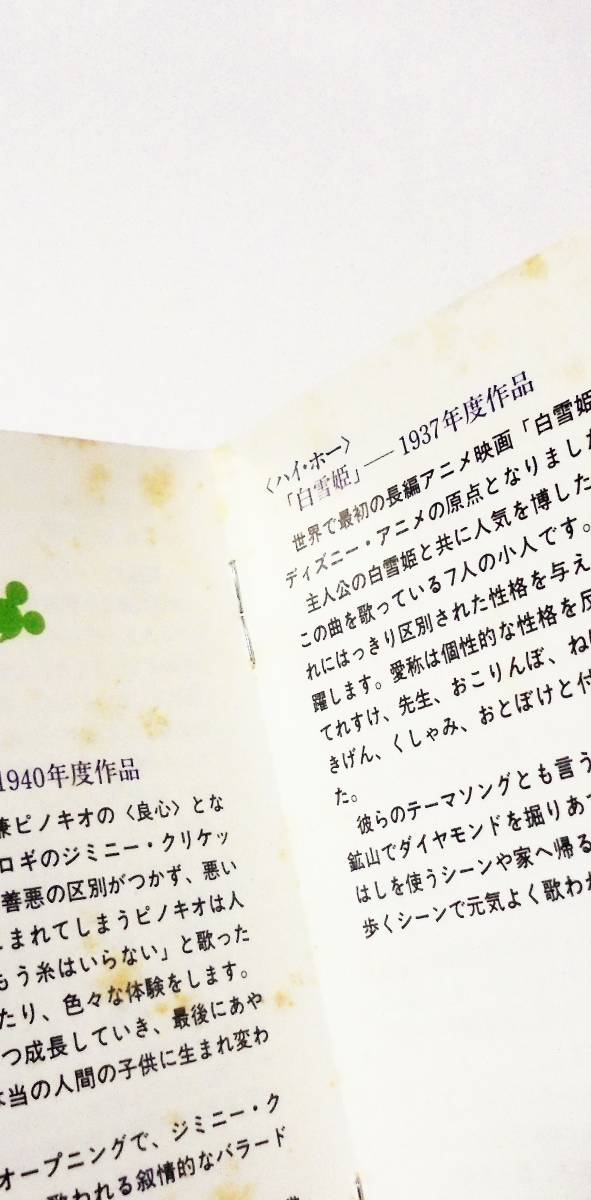 1940年度作品
ピノキオの〈良心〉とな
ロギのジミニー・クリケッ
善悪の区別がつかず、悪い
まれてしまうピノキオは人
もう糸はいらない」と歌った
たり、色々な体験をします。
つ成長していき、最後にあや
当の人間の子供に生まれ変わ
オープニングで、ジミニー・ク
歌われる叙情的なバラード
〈ハイ・ホー〉
「白雪姫」— 1937年度作品
世界で最初の長編アニメ映画「白雪姫
ディズニー・アニメの原点となりまし
主人公の白雪姫と共に人気を博した
この曲を歌っている7人の小人です。
れにはっきり区別された性格を与え
躍します。愛称は個性的な性格を反
てれすけ、先生、おこりんぼ、ね
きげん、くしゃみ、おとぼけと付
た。
彼らのテーマソングとも言う
鉱山でダイヤモンドを掘りあ
はしを使うシーンや家へ帰る
歩くシーンで元気よく歌わ